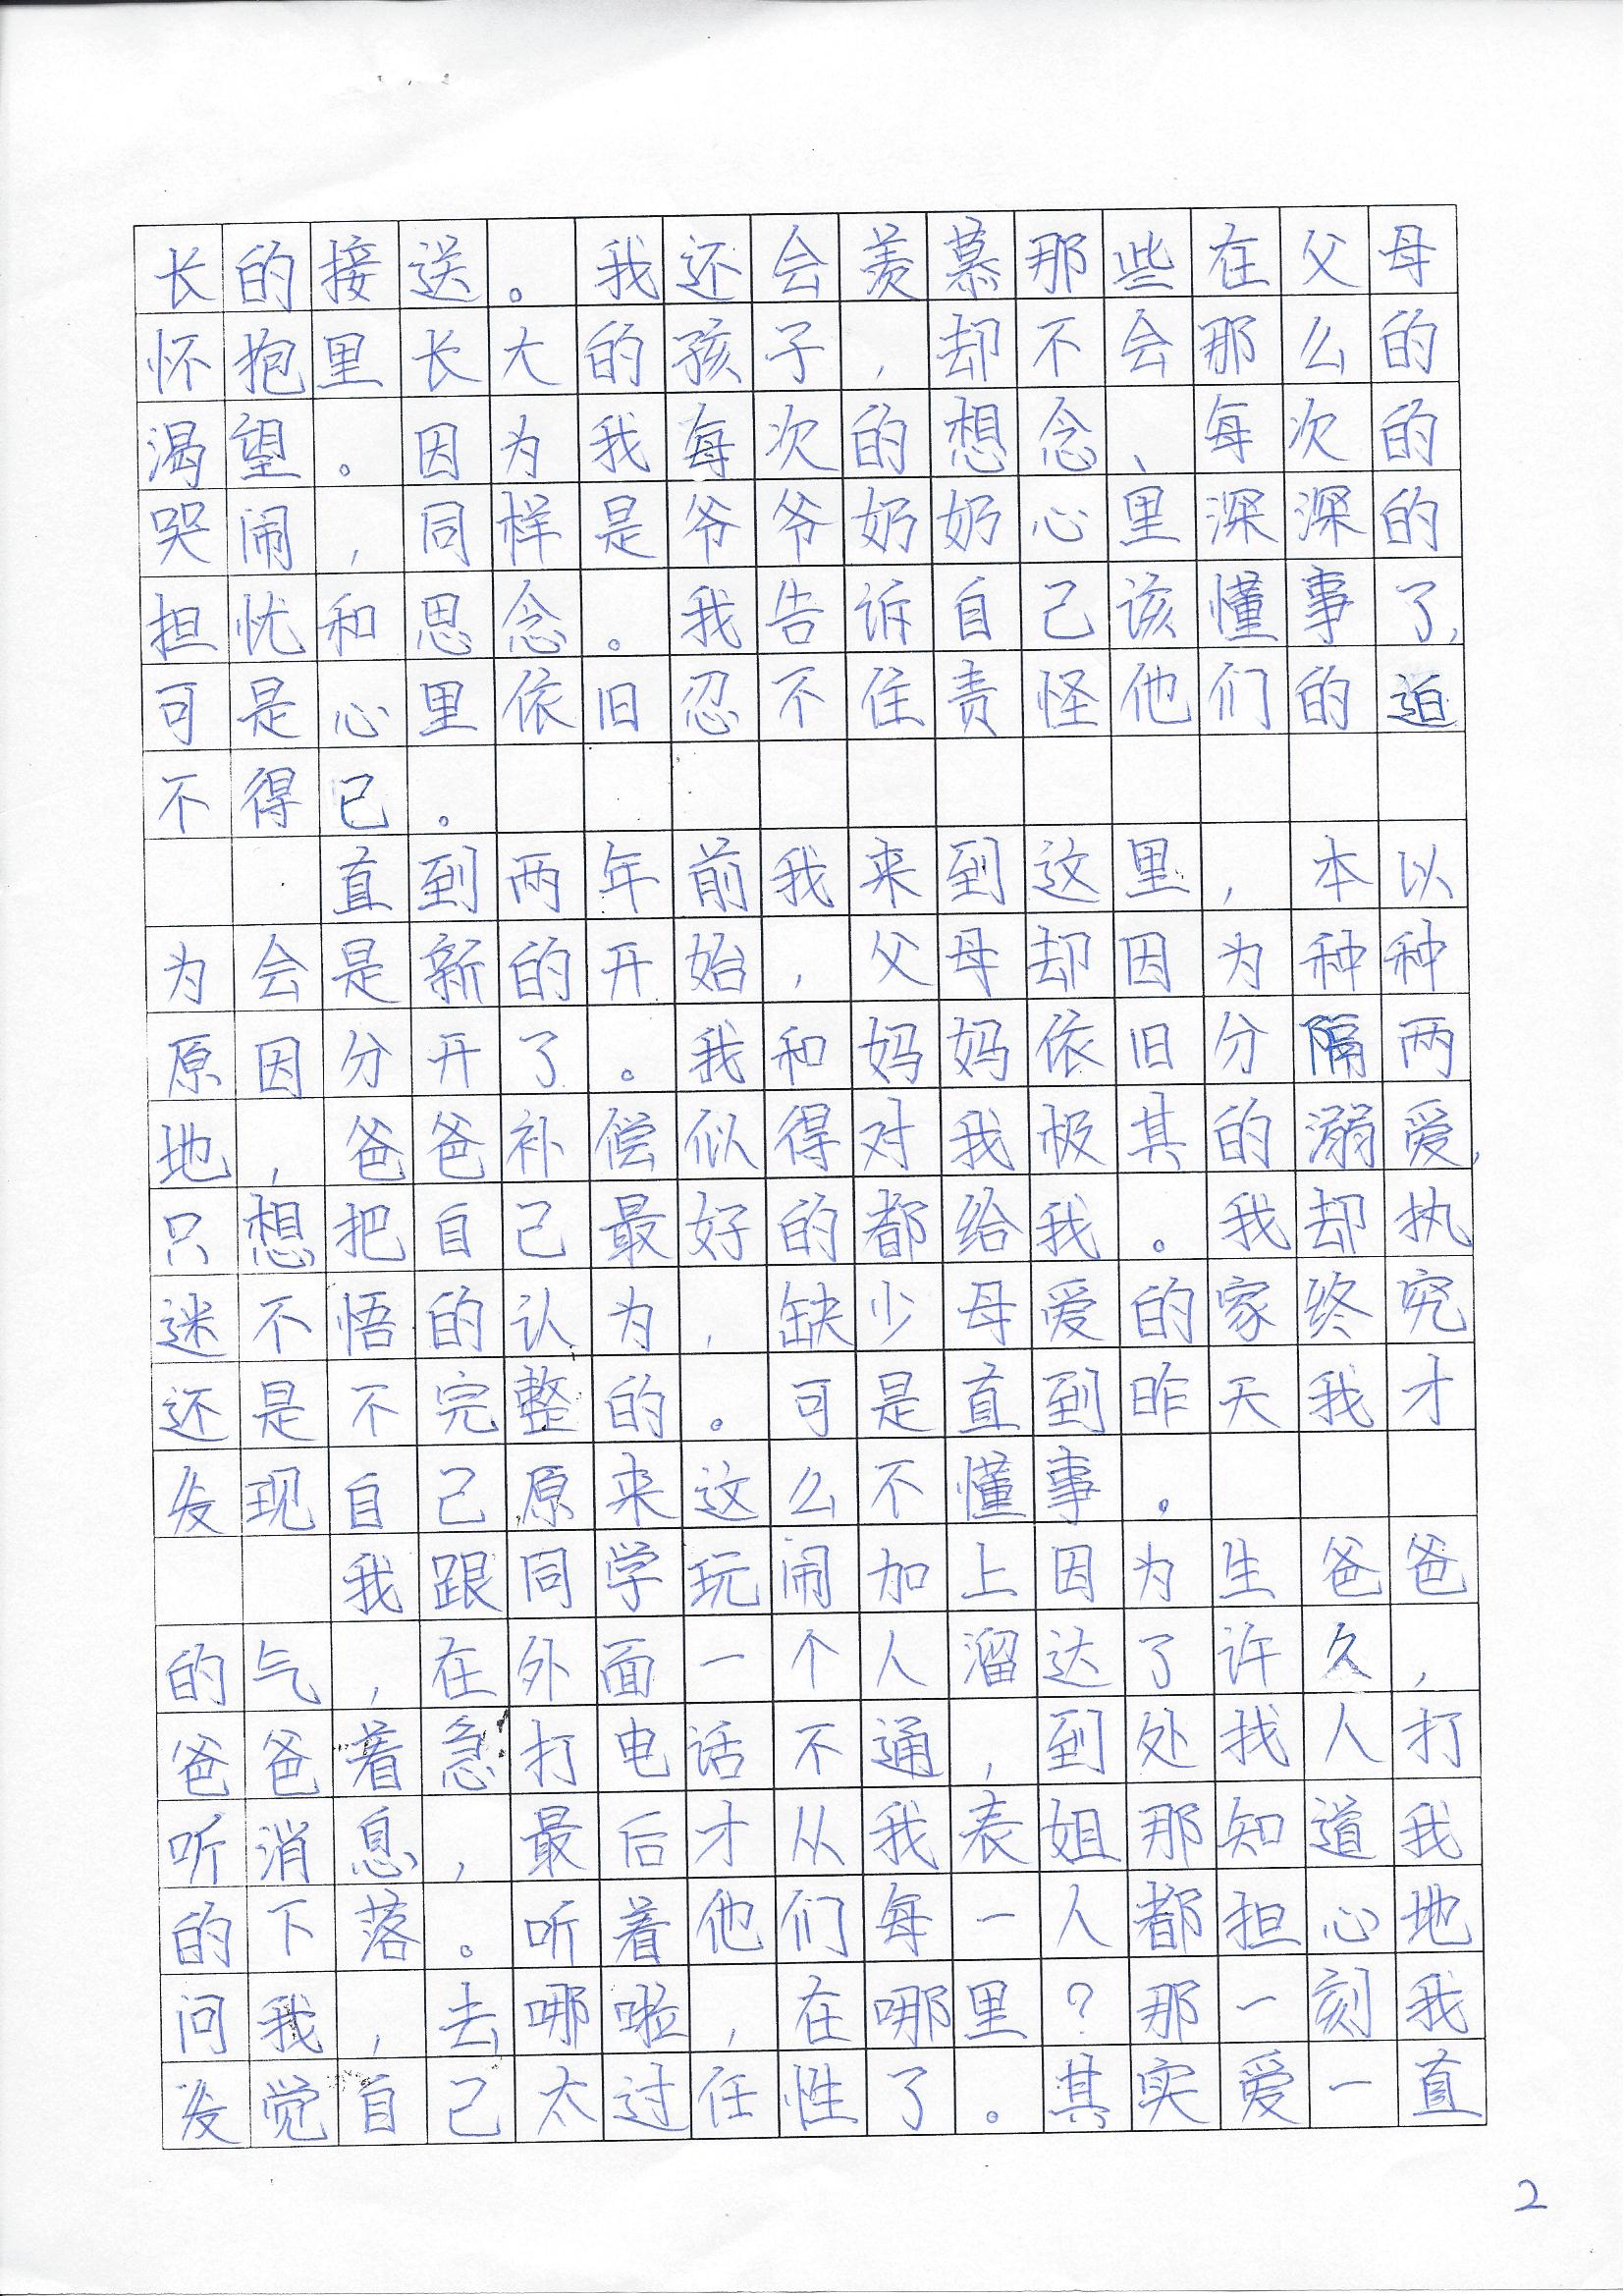 长的接送。我还会羡慕那些在父母
怀抱里长大的孩子，却不会那么的
渴望。因为我每次的想念、每次的
哭闹，同样是爷爷奶奶心里深深的
担忧和思念。我告诉自己该懂事了，
可是心里依旧忍不住责怪他们的迫
不得已。
直到两年前我来到这里，本以
为会是新的开始，父母却因为种种
原因分开了。我和妈妈依旧分隔两
地，爸爸补偿似得对我极其的溺爱，
只想把自己最好的都给我。我却执
迷不悟的认为，缺少母爱的家终究
还是不完整的。可是直到昨天我才
发现自己原来这么不懂事。
我跟同学玩闹加上因为生爸爸
的气，在外面一个人溜达了许久，
爸爸着急打电话不通，到处找人打
听消息，最后才从我表姐那知道我
的下落。听着他们每一人都担心地
问我，去哪啦，在哪里？那一刻我
发觉自己太过任性了。其实爱一直
2